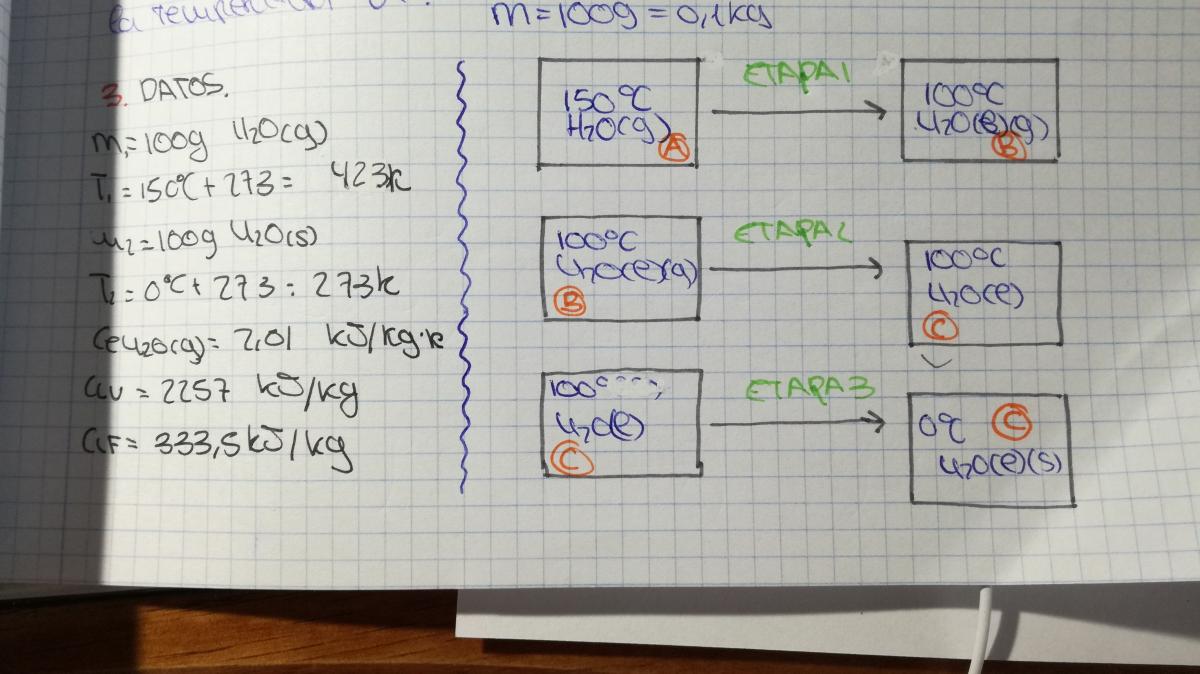 la
m=100g=0,1kg
3. DATOS.
m₁=100g H₂O(g)
T₁=150ºC+273= 423k
m₂=100g H₂O(s)
T₂=0ºC+273= 273k
CeH₂O(g)= 2,01 kJ/kg·k
CLV = 2257 kJ/kg
CLF= 333,5kJ/kg
150ºC
H₂O(g)
A
ETAPA1
100ºC
H₂O(e)(g)
B
100ºC
H₂O(e)(g)
B
ETAPA2
100ºC
H₂O(e)
C
100º
H₂O(e)
C
ETAPA3
0ºC C
H₂O(e)(s)